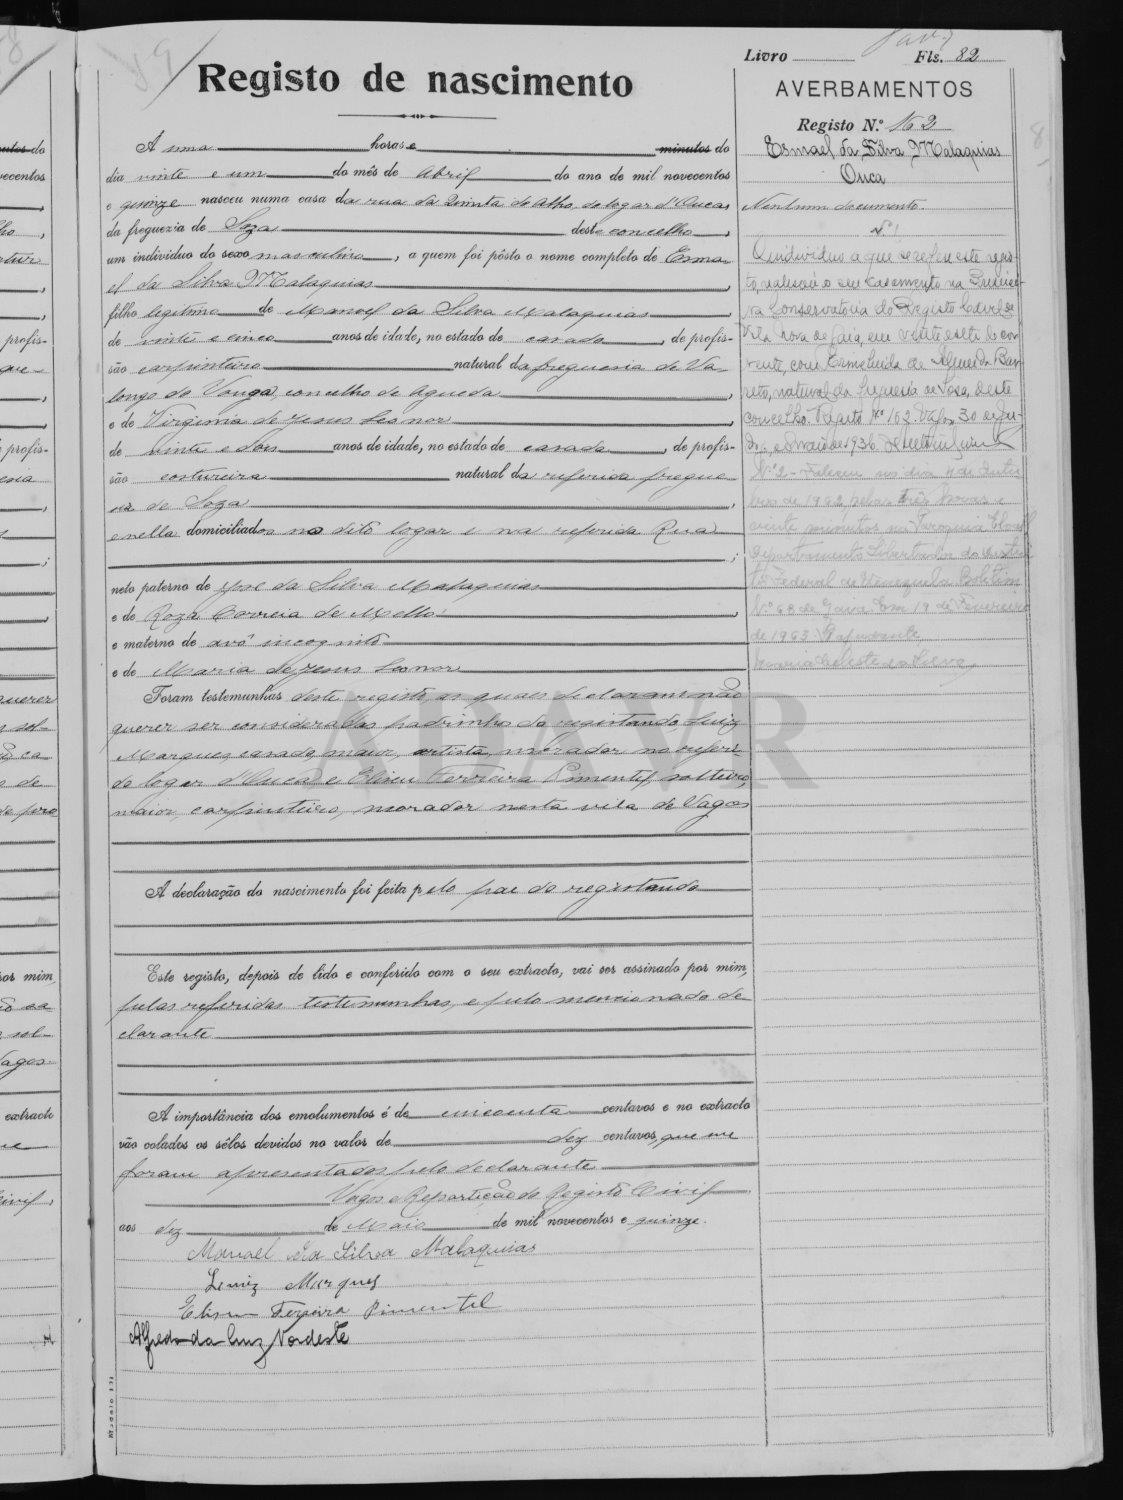 Livro Fls. 82
Registo de nascimento
AVERBAMENTOS
Registo N.º 162
Esmael da Silva Malaquias
Ouca
Nenhum documento
Nº 1
O individuo a que se refere este regis-
to, celebrou o seu casamento na Primei-
ra Conservatória do Registo Civil de
Vila Nova de Gaia, em vinte e sete do cor-
rente, com Ermelinda de Almeida Bar-
reto, natural da freguesia de Soza, deste
concelho. Vagos, 30 de
de 1936
Nº 2 - Faleceu no dia 4 de Outu
bro de 1962, pelas três horas e
vinte minutos na Paroquia
Departamento Libertador do Distri
to Federal de Venezuela. Boletim
Nº 68 de Em 19 de Fevereiro
de 1963. O ajudante
Maria Celeste da Silva
A uma horas e minutos do
dia vinte e um do mês de Abril do ano de mil novecentos
e quinze nasceu numa casa da rua da Quinta do Alho, do logar d'Oucas
da freguezia de Soza deste concelho,
um individuo do sexo masculino, a quem foi pôsto o nome completo de Esma-
el da Silva Malaquias
filho legitimo de Manoel da Silva Malaquias,
de vinte e cinco anos de idade, no estado de casado, de profis-
são carpinteiro natural da freguesia de Va-
longo do Vouga, concelho de Agueda,
e de Virginia de Jesus Leonor,
de vinte e dois anos de idade, no estado de casada, de profis-
são costureira natural da referida fregue
sia de Soza,
e nella domiciliados no dito logar e na referida Rua
;
neto paterno de José da Silva Malaquias
e de Roza Correia de Mello,
e materno de avô incognito
e de Maria de Jesus Leonor
Foram testemunhas deste registo, as quaes declararam não
querer ser consideradas padrinhos do registando, Luiz
Marques, casado, maior, artista, morador no referi-
do logar d'Oucas e Eliseu Ferreira Pimentel, solteiro,
maior, carpinteiro, morador nesta vila de Vagos
A declaração do nascimento foi feita pelo pae do registando
Este registo, depois de lido e conferido com o seu extracto, vai ser assinado por mim,
pelas referidas testemunhas, e pelo mencionado de-
clarante
A importância dos emolumentos é de cincoenta centavos e no extracto
vão colados os sêlos devidos no valor de dez centavos, que me
foram apresentados pelo declarante
Vagos e Repartição do Registo Civil
aos dez de Maio de mil novecentos e quinze.
Manoel da Silva Malaquias
Luiz Marques
Eliseu Ferreira Pimentel
Alfredo da Cruz Nordeste
Modelo 131
ADAVR